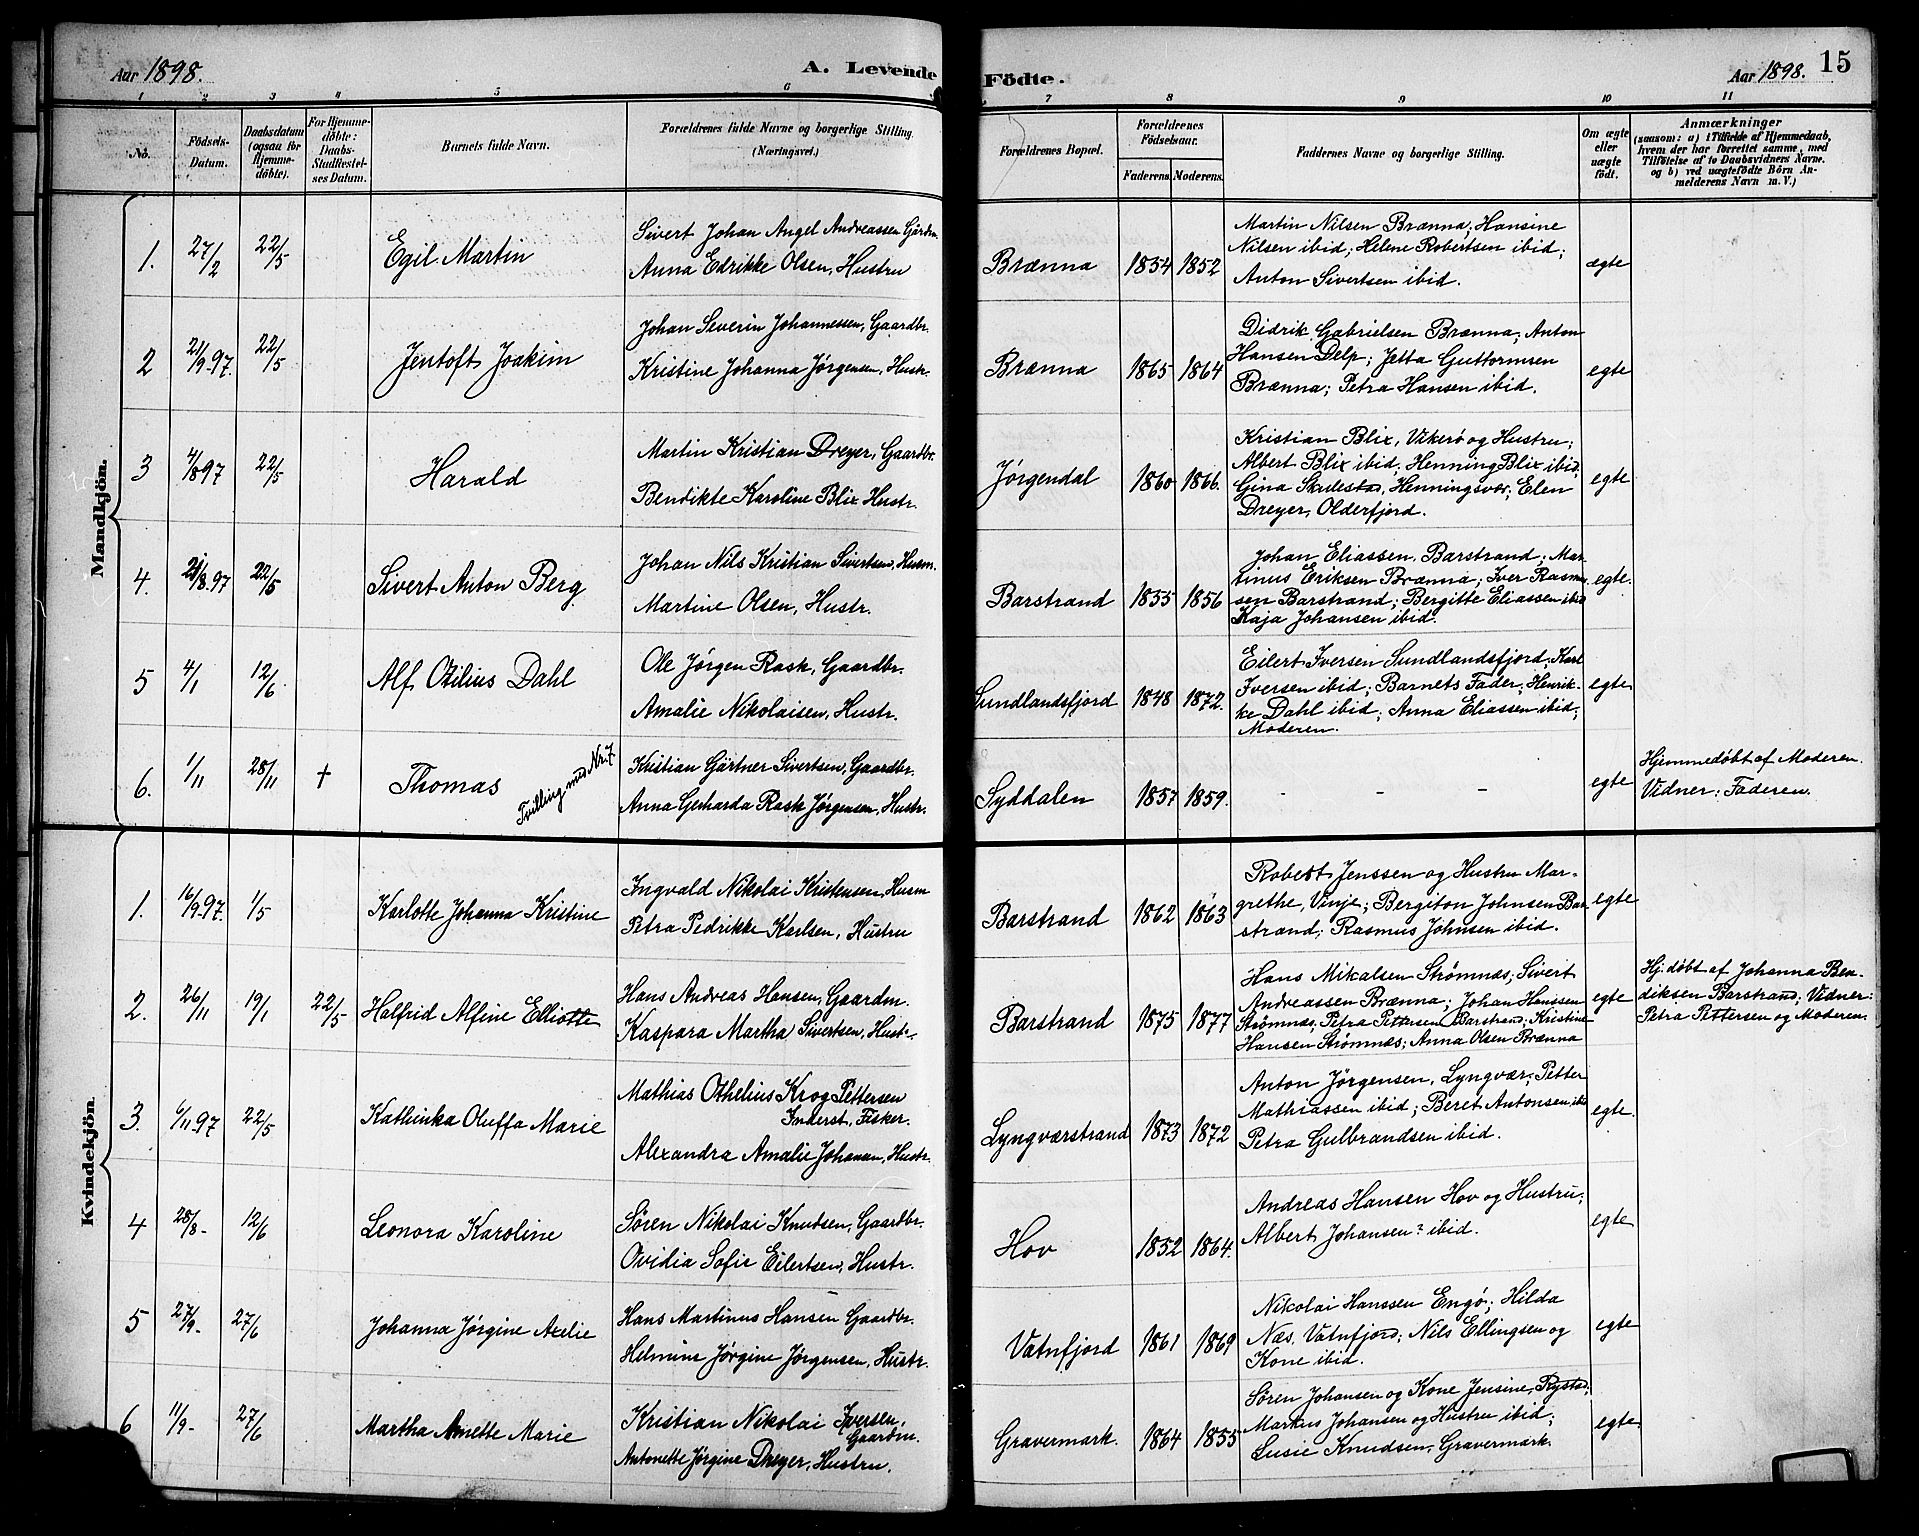 Aar 1898.
A. Levende Födte.
Aar 1898.
15
1 2 3 4 5 6 7 8 9 10 11
No.
Födsels-
Datum.
Daabsdatum
(ogsaa för
Hjemme-
döbte).
For Hjemme-
döbte:
Daabs-
Stadfæstel-
ses Datum.
Barnets fulde Navn.
Forældrenes fulde Navne og borgerlige Stilling.
(Næringsvei.)
Forældrenes Bopæl.
Forældrenes
Födselsaar.
Faderens. Moderens.
Faddernes Navne og borgerlige Stilling.
Om ægte
eller
uægte
födt.
Anmærkninger
(saasom: a) i Tilfælde af Hjemmedaab,
hvem der har forrettet samme, med
Tilföielse af to Daabsvidners Navne.
og b) ved uægtefödte Börn An-
melderens Navn m. V.)
Mandkjön.
1. 27/2 22/5 Egil Martin
Sivert Johan Angel Andreassen Gårdm.
Anna Edrikke Olsen, Hustru
Brænna 1854 1852
Martin Nilsen Brænna; Hansine
Nilsen ibid; Helene Robertsen ibid;
Anton Sivertsen ibid.
ægte
2 21/9.97. 22/5 Jentoft Joakim
Johan Severin Johannessen, Gaardbr.
Kristine Johanna Jørgensen, Hustr.
Brænna 1865 1864
Didrik Gabrielsen Brænna; Anton
Hansen Delp; Jetta Guttormsen
Brænna; Petra Hansen ibid.
egte
3 4/8 97 22/5 Harald
Martin Kristian Dreyer, Gaardbr.
Bendikte Karoline Blix Hustr.
Jørgendal 1860 1866.
Kristian Blix, Vikerø og Hustru;
Albert Blix ibid; Henning Blix ibid;
Gina Skulestad, Henningsvær; Elen
Dreyer, Olderfjord.
egte
4. 21/8.97 22/5 Sivert Anton Berg
Johan Nils Kristian Sivertsen, Husm.
Martine Olsen, Hustr.
Barstrand 1855 1856
Johan Eliassen, Barstrand; Mar-
tinus Eriksen Brænna; Iver Rasmus-
sen Barstrand; Bergitte Eliassen ibid
Kaja Johansen ibid.
egte.
5 4/1 12/6 Alf Otilius Dahl
Ole Jørgen Rask, Gaardbr.
Amalie Nikolaisen, Hustr.
Sundlandsfjord 1848 1872.
Eilert Iversen Sundlandsfjord; Karl
Iversen ibid; Barnets Fader; Henrik-
ke Dahl ibid; Anna Eliassen ibid;
Moderen.
egte
6. 1/11 28/11 † Thomas
Tvilling med Nr. 7
Kristian Gärtner Sivertsen, Gaardbr.
Anna Gerharda Rask Jørgensen, Hustr.
Syddalen 1857 1859.
- - -
egte
Hjemmedøbt af Moderen.
Vidner: Faderen.
Kvindekjön.
1. 16/9.97. 1/5 Karlotte Johanna Kristine
Ingvald Nikolai Kristensen, Husm
Petra Pedrikke Karlsen, Hustru
Barstrand 1862 1863
Robert Jenssen og Hustru Mar-
grethe, Vinje; Bergiton Johnsen Bar-
strand; Rasmus Johnsen ibid.
egte
2. 26/11 19/1 22/5 Halfrid Alfine Elliotte
Hans Andreas Hansen, Gaardm.
Kaspara Martha Sivertsen, Hustr.
Barstrand 1875 1877
Hans Mikalsen Strømnæs; Sivert
Andreassen Brænna; Johan Hanssen
Strømnæs; Petra Pettersen Barstrand; Kristine
Hansen Strømnæs; Anna Olsen Brænna
egte
Hj. døbt af Johanna Ben-
diksen Barstrand; Vidner:
Petra Pettersen og Moderen.
3. 6/11 97 22/5 Kathinka Oluffa Marie
Mathias Othelius Krog Pettersen
Inderst, Fisker.
Alexandra Amalie Johansen, Hustr.
Lyngværstrand 1873 1872
Anton Jørgensen, Lyngvær; Petter
Mathiassen ibid; Beret Antonsen, ibid
Petra Gulbrandsen ibid.
egte.
4 28/8- 12/6 Leonora Karoline
Søren Nikolai Knudsen, Gaardbr.
Ovidia Sofie Eilertsen, Hustr.
Hov 1852 1864.
Andreas Hansen Hov og Hustru;
Albert Johansen? ibid.
egte
5 27/9- 27/6 Johanna Jørgine Axelie
Hans Martinus Hansen Gaardbr.
Helmine Jørgine Jørgensen, Hustr.
Vatnfjord 1861 1869
Nikolai Hanssen Engø; Hilda
Næs, Vatnfjord; Nils Ellingsen og
Kone ibid.
egte
6 11/9- 27/6 Martha Annette Marie
Kristian Nikolai Iversen,
Gaardm.
Antonette Jørgine Dreyer, Hustru.
Gravermark. 1864 1855
Søren Johansen og Kone Jensine, Rystad;
Markus Johansen og Hustru ibid;
Lusie Knudsen, Gravermark.
egte